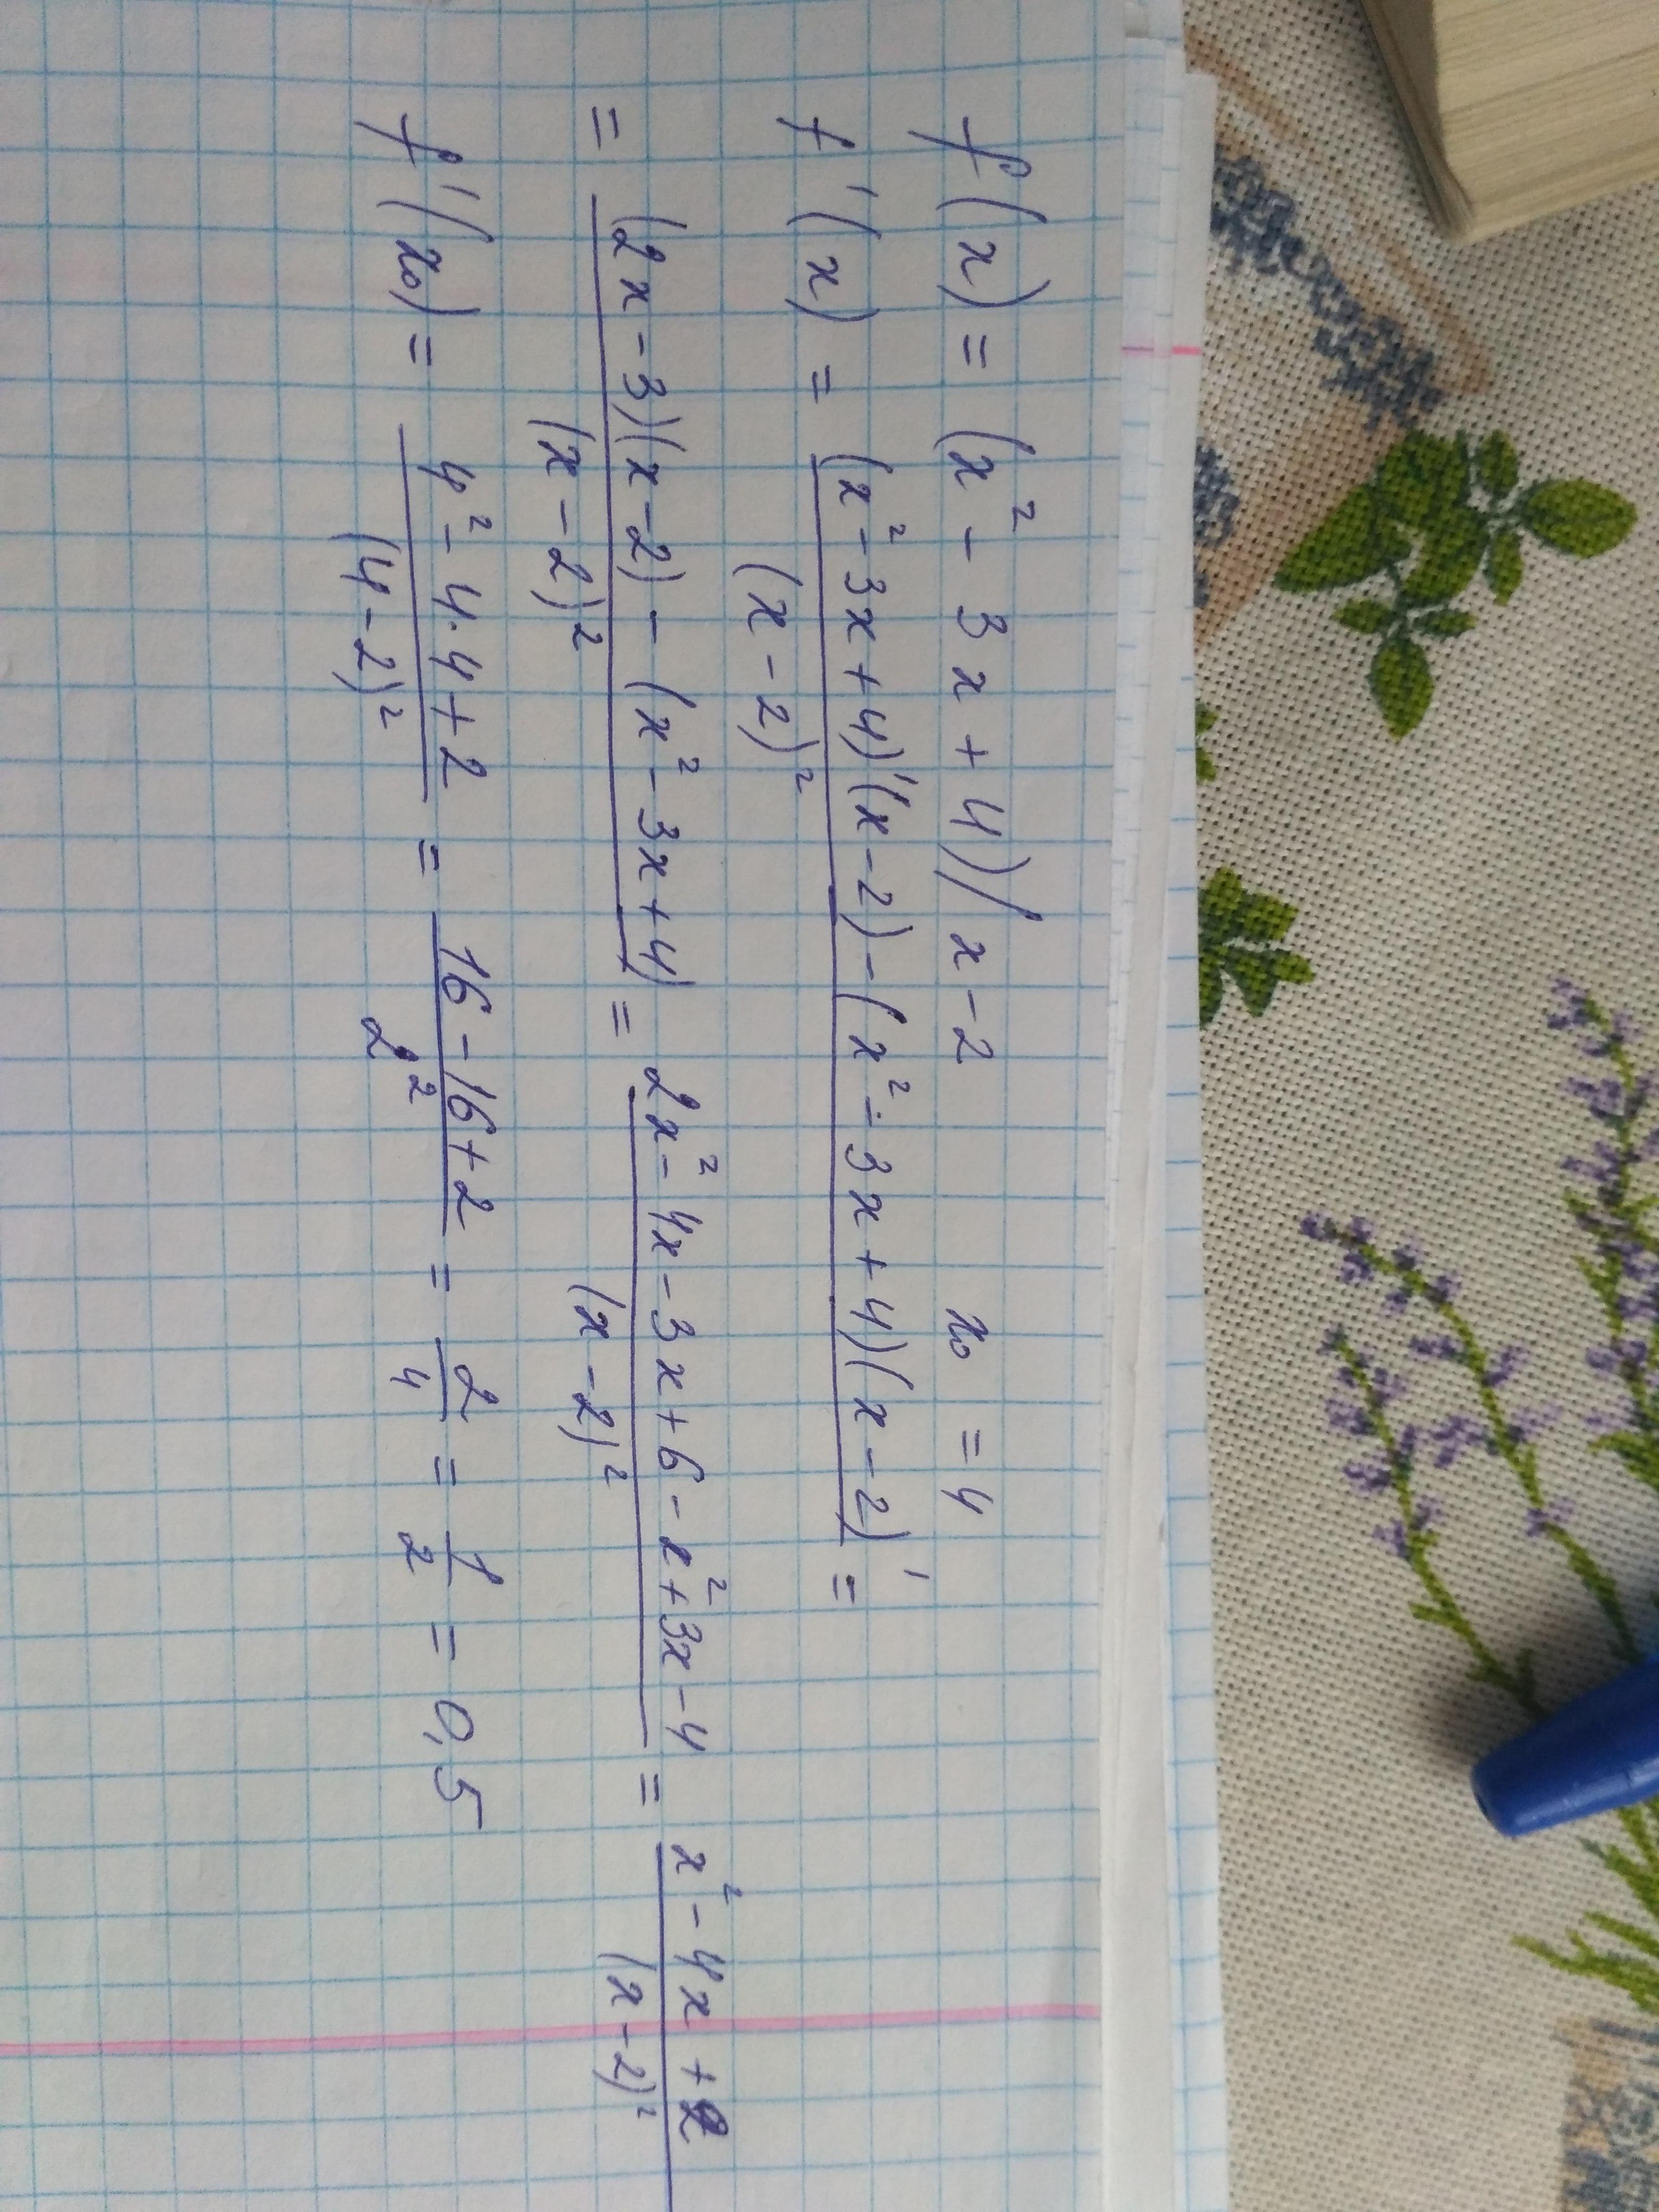 f(x) = (x² - 3x + 4)/x - 2    x₀ = 4
f'(x) = (x² - 3x + 4)'(x - 2) - (x² - 3x + 4)(x - 2)' =
(x - 2)²
= (2x - 3)(x - 2) - (x² - 3x + 4) = 2x² - 4x - 3x + 6 - x² + 3x - 4 = x² - 4x + 2
(x - 2)²    (x - 2)²    (x - 2)²
f'(x₀) = 4² - 4·4 + 2 = 16 - 16 + 2 = 2 = 1 = 0,5
(4 - 2)²    2²    4    2